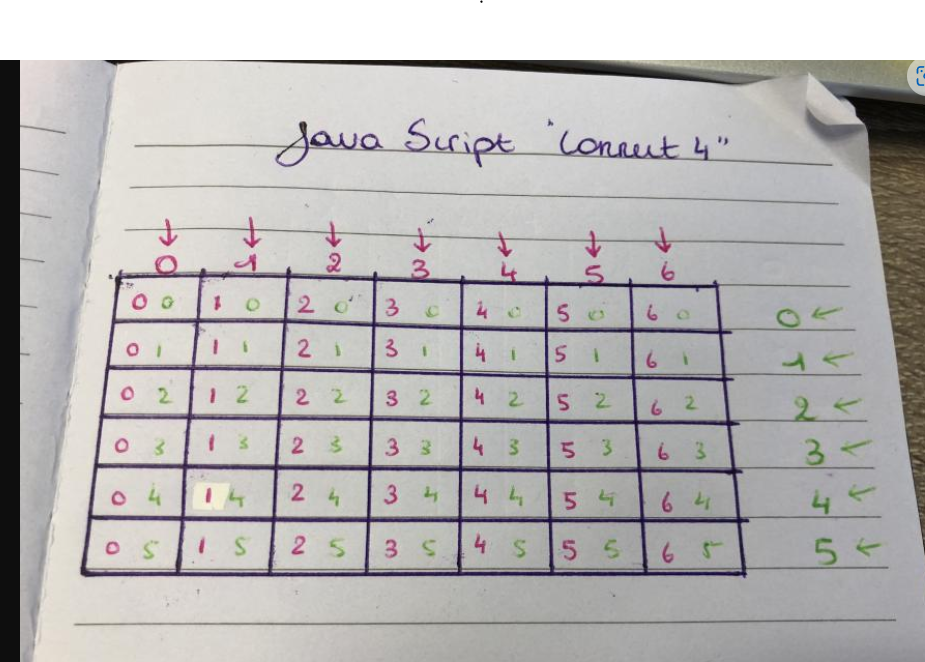 Java Script "Connect 4"
0 1 2 3 4 5 6
0 0 1 0 2 0 3 0 4 0 5 0 6 0 0
0 1 1 1 2 1 3 1 4 1 5 1 6 1 1
0 2 1 2 2 2 3 2 4 2 5 2 6 2 2
0 3 1 3 2 3 3 3 4 3 5 3 6 3 3
0 4 1 4 2 4 3 4 4 4 5 4 6 4 4
0 5 1 5 2 5 3 5 4 5 5 5 6 5 5